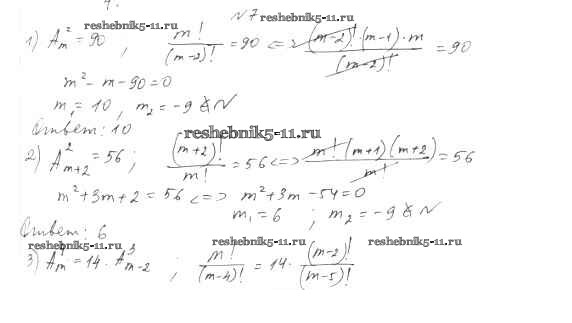 №7
reshebnik5-11.ru reshebnik5-11.ru
1) A²ₘ = 90 ; m!/(m-2)! = 90 <=> (m-2)!·(m-1)·m/(m-2)! = 90
m² - m - 90 = 0
m₁ = 10 , m₂ = -9 ∉ N
Ответ: 10
reshebnik5-11.ru
2) A²ₘ₊₂ = 56 ; (m+2)!/m! = 56 <=> m!(m+1)(m+2)/m! = 56
m² + 3m + 2 = 56 <=> m² + 3m - 54 = 0
m₁ = 6 ; m₂ = -9 ∉ N
Ответ: 6
reshebnik5-11.ru reshebnik5-11.ru reshebnik5-11.ru
3) A⁴ₘ = 14 · A³ₘ₋₂ ; m!/(m-4)! = 14 · (m-2)!/(m-5)!